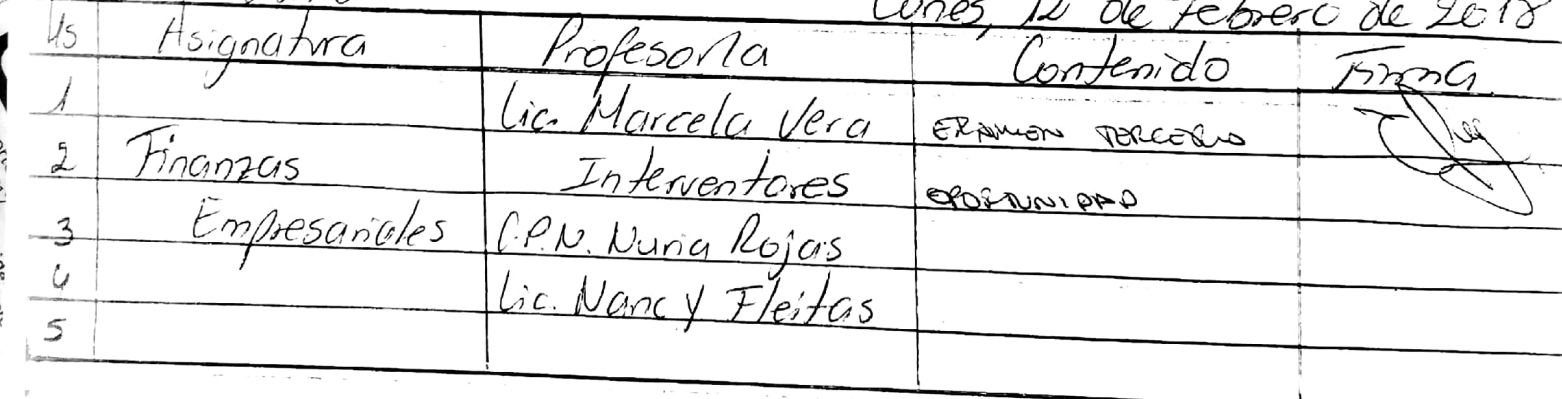 Lunes, 12 de febrero de 2018
Hs Asignatura Profesor/a Contenido Firma
1 Lic. Marcela Vera EXAMEN TERCERA
2 Finanzas Interventores OPORTUNIDAD
3 Empresariales C.P.N. Nuria Rojas
4 Lic. Nancy Fleitas
5